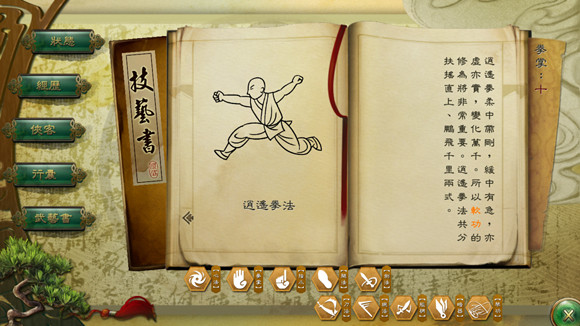 狀態
經歷
俠客
行囊
技藝書
逍遙拳法
拳掌：十
逍遙拳柔中帶剛，緩中有急，亦
虛亦實，變化萬千。所以軟功的
修為將非常重要。逍遙拳法共分
扶搖直上、鵬飛千里兩式。